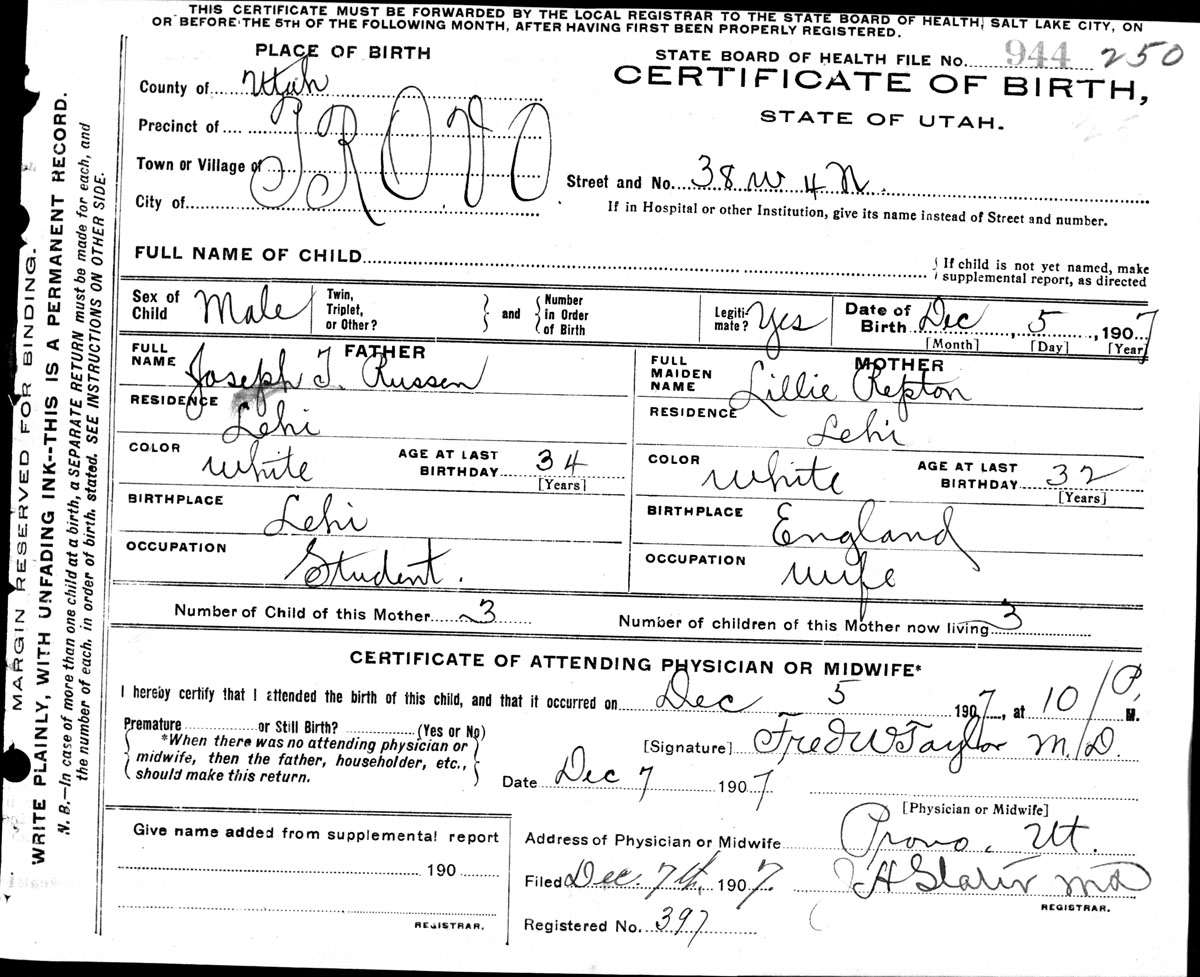 THIS CERTIFICATE MUST BE FORWARDED BY THE LOCAL REGISTRAR TO THE STATE BOARD OF HEALTH, SALT LAKE CITY, ON
OR BEFORE THE 5TH OF THE FOLLOWING MONTH, AFTER HAVING FIRST BEEN PROPERLY REGISTERED.
MARGIN RESERVED FOR BINDING.
WRITE PLAINLY, WITH UNFADING INK--THIS IS A PERMANENT RECORD.
N. B.—In case of more than one child at a birth, a SEPARATE RETURN must be made for each, and
the number of each, in order of birth, stated. SEE INSTRUCTIONS ON OTHER SIDE.
PLACE OF BIRTH
County of Utah
Precinct of
Town or Village of
City of
PROVO
STATE BOARD OF HEALTH FILE No. 944 250
CERTIFICATE OF BIRTH,
STATE OF UTAH.
Street and No. 38 W 4 N.
If in Hospital or other Institution, give its name instead of Street and number.
FULL NAME OF CHILD
If child is not yet named, make
supplemental report, as directed
Sex of Child Male
Twin, Triplet, or Other?
and
Number in Order of Birth
Legiti- mate? Yes
Date of Birth Dec, 5, 1907
[Month] [Day] [Year]
FATHER
FULL NAME Joseph J. Russen
RESIDENCE Lehi
COLOR White
AGE AT LAST BIRTHDAY 34
[Years]
BIRTHPLACE Lehi
OCCUPATION Student.
MOTHER
FULL MAIDEN NAME Lillie Repton
RESIDENCE Lehi
COLOR White
AGE AT LAST BIRTHDAY 32
[Years]
BIRTHPLACE England
OCCUPATION Wife
Number of Child of this Mother 3
Number of children of this Mother now living 3
CERTIFICATE OF ATTENDING PHYSICIAN OR MIDWIFE*
I hereby certify that I attended the birth of this child, and that it occurred on Dec 5 1907, at 10 P. M.
Premature or Still Birth? (Yes or No)
*When there was no attending physician or
midwife, then the father, householder, etc.,
should make this return.
[Signature] Fred W Taylor M.D.
Date Dec 7 1907
[Physician or Midwife]
Give name added from supplemental report
190
REGISTRAR.
Address of Physician or Midwife Provo, Ut.
Filed Dec. 7th, 1907.
H Slater MD
REGISTRAR.
Registered No. 397